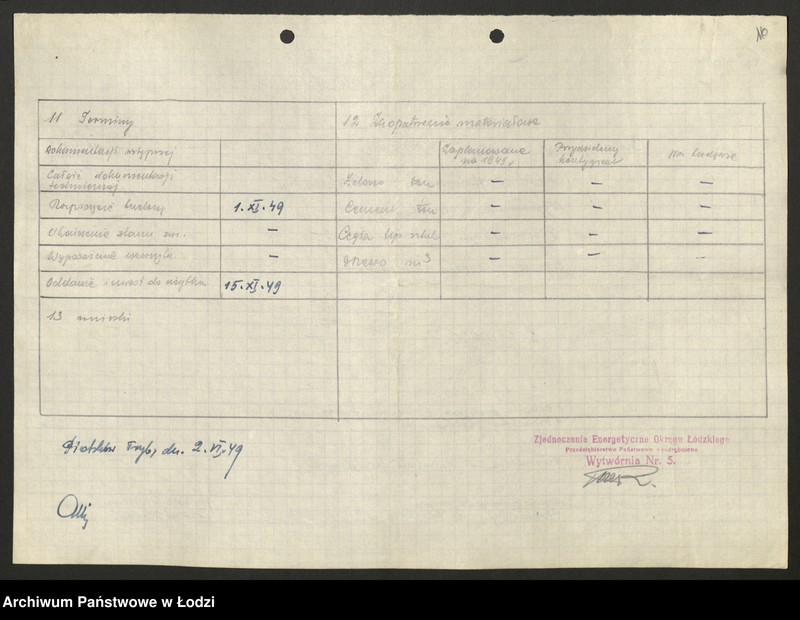 11 Terminy
12 Zaopatrzenie materiałowe
Dokumentacji wstępnej
Zaplanowane na 1949 r
Przydzielony kontyngent
Na budowie
Całość dokumentacji technicznej
Żelazo ton
— — —
Rozpoczęcie budowy
1.XI.49
Cement ton
— — —
Ukończenie stanu sur.
—
Cegła tys. sztuk
— — —
Wyposażenie wewnętrz.
—
Drzewo m3
— — —
Oddanie inwest do użytku
15.XI.49
13 wnioski
Piotrków Tryb, dn. 2.VI.49
Zjednoczenie Energetyczne Okręgu Łódzkiego
Przedsiębiorstwo Państwowe wyodrębnione
Wytwórnia Nr. 5.
Archiwum Państwowe w Łodzi